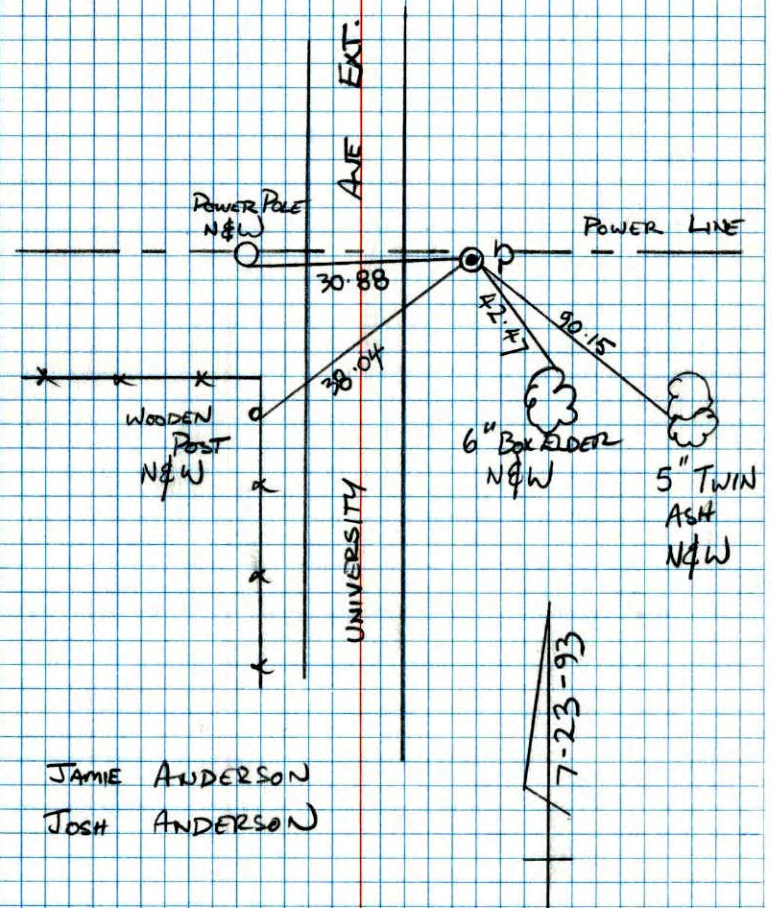 UNIVERSITY AVE EXT.
POWER POLE
N&W
POWER LINE
P
30.88
38.04
42.47
90.15
WOODEN
POST
N&W
6" BOXELDER
N&W
5" TWIN
ASH
N&W
7-23-93
JAMIE ANDERSON
JOSH ANDERSON